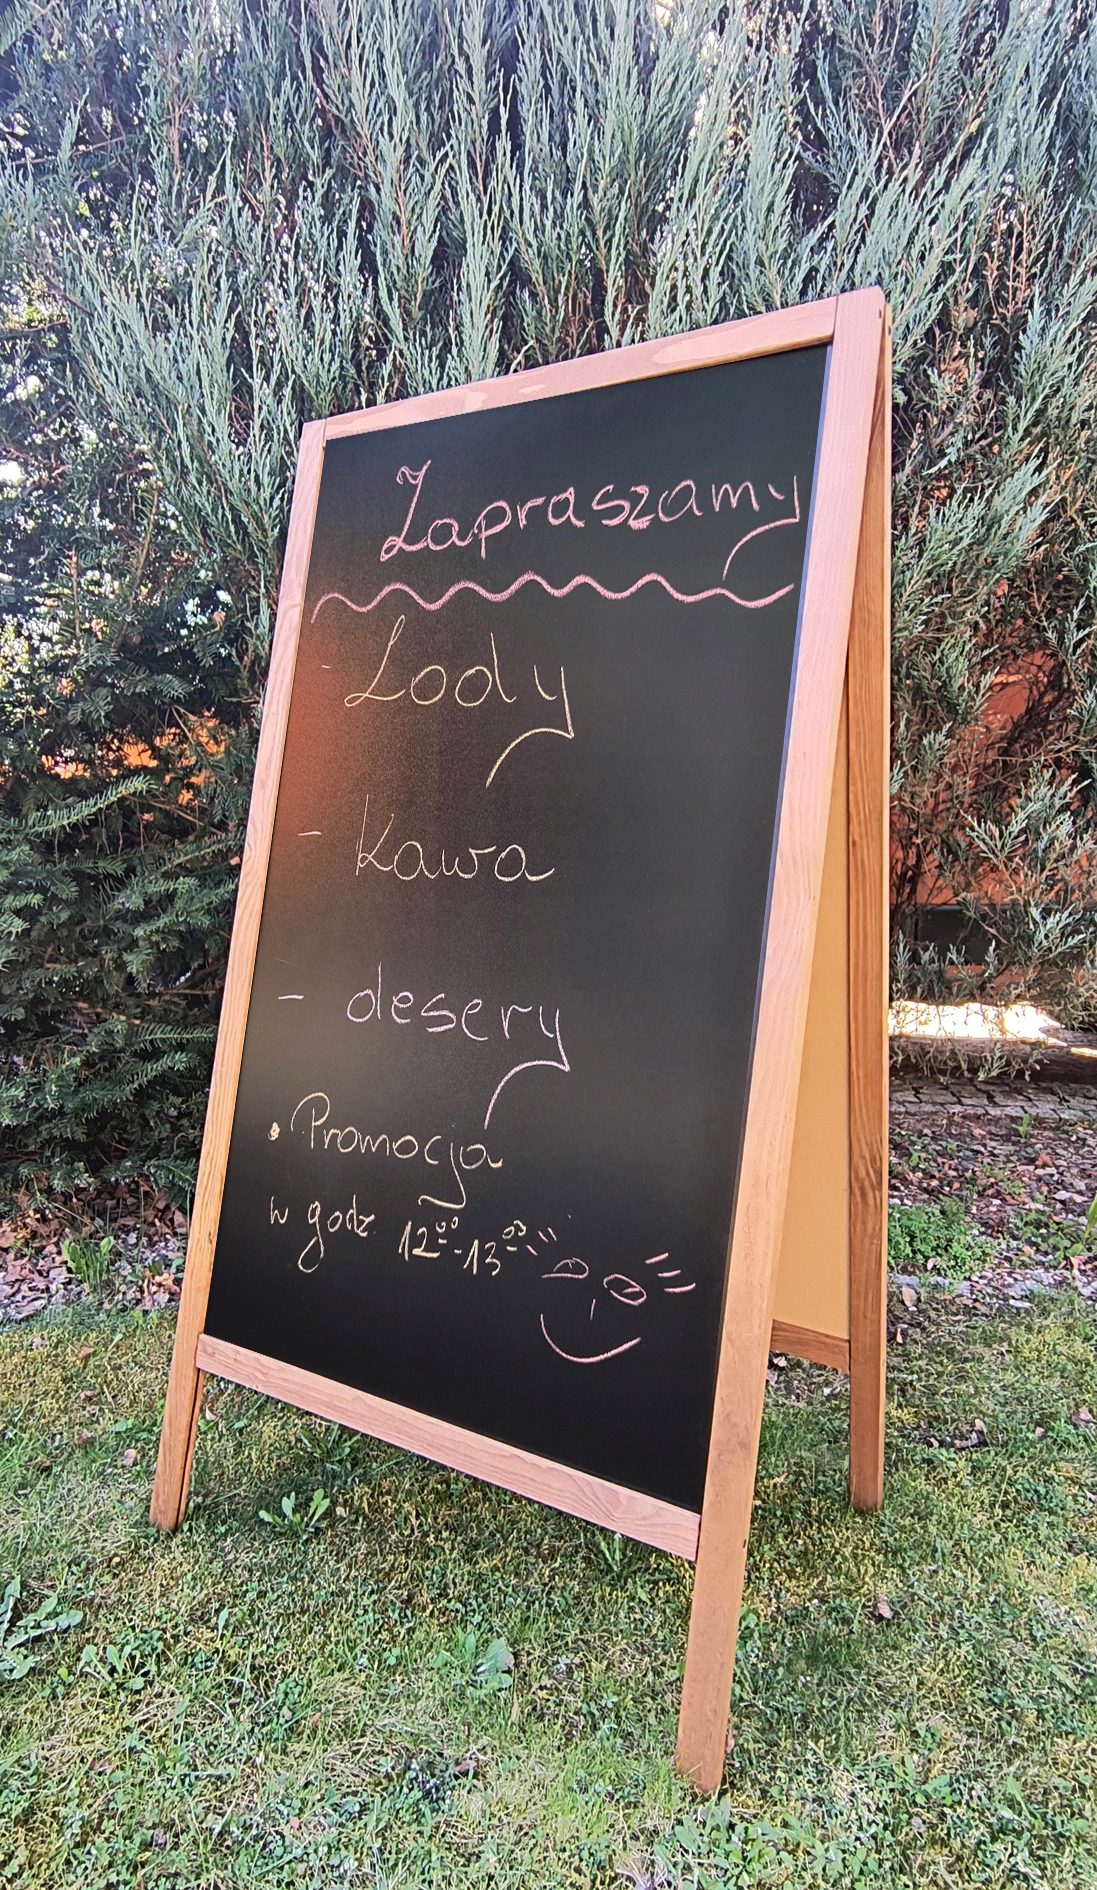 Zapraszamy
- Lody
- Kawa
- desery
• Promocja
w godz. 12⁰⁰-13⁰⁰